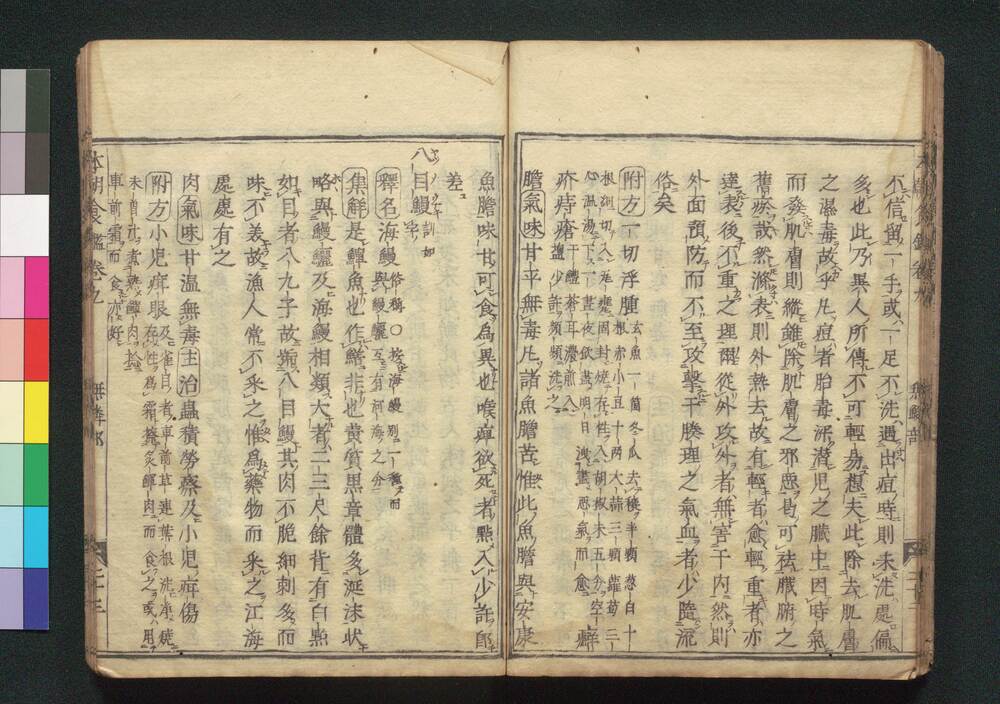 不信留一手或一足不洗遇出痘時則未洗處偏
多也此乃異人所傳不可輕易想夫此除去肌膚
之濕毒故乎凡痘者胎毒深潜児之臓中因時氣
而發肌膚則縱雖除肌膚之邪惡曷可祛臓腑之
舊瘀哉然滌表則外熱去故有輕者愈輕重者亦
達表後不重之理爾從外攻外者無害于内然則
外面預防而不至攻撃于腠理之氣血者少隨流
俗矣
附方一切浮腫玄魚一箇冬瓜去穰半顆葱白十
根赤小豆十両大蒜三顆蘿蔔三
膽氣味甘平無毒凡諸魚膽苦惟此魚膽與安康
魚膽味甘可食為異也喉痺欲死者點入少許即
差
八目鰻訓如字
釋名海鰻俗稱〇按海鰻別一種而
與鰻鱺互有河海之分
集解是鱓魚也作鱔非也黄質黒章體多涎沫状
略與鰻鱺及海鰻相類大者二三尺餘背有白點
如目者八九子故號八目鰻其肉不脆細刺多而
味不美故漁人常不采之惟為藥物而采之江海
處處有之
肉氣味甘温無毒主治蟲積勞瘵及小児疳傷
附方小児疳眼及雀目者車前草連葉根洗浄焼
存性為霜糝炙鱓肉而食之或用
車前霜而食亦好
本朝食鑑巻九
無鱗部
二十三